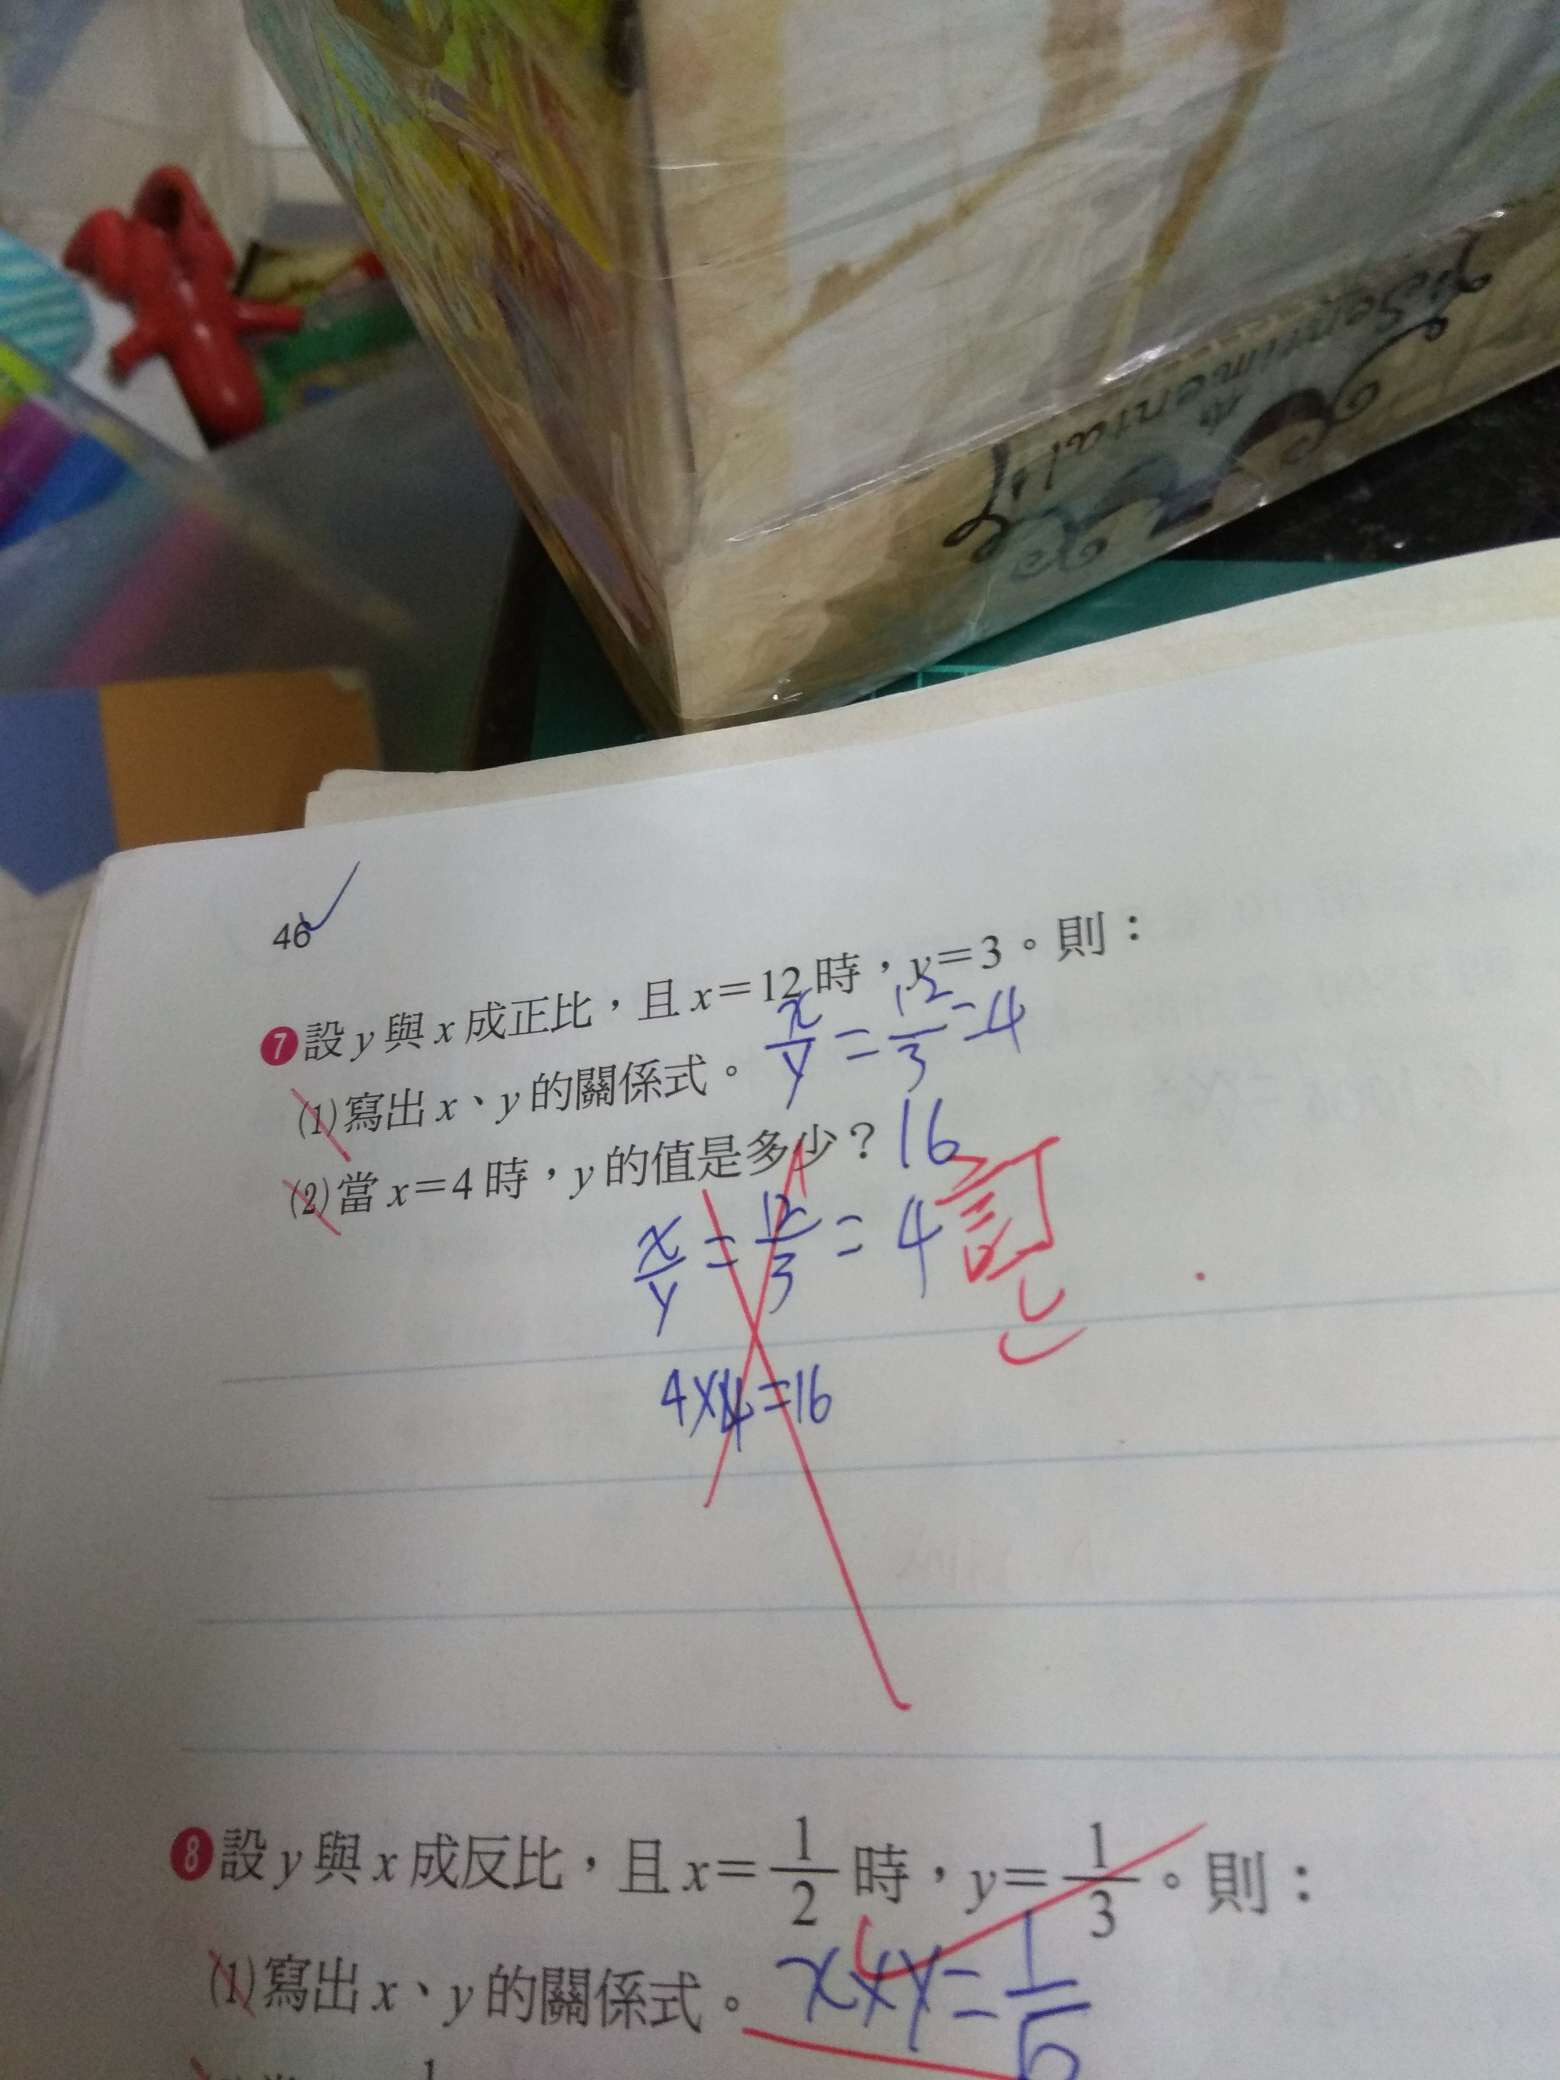 Sentimental
46
❼設 y 與 x 成正比，且 x=12 時，y=3。則：
(1)寫出 x、y 的關係式。 x/y = 12/3 = 4
(2)當 x=4 時，y 的值是多少？ 16
x/y = 12/3 = 4 訂
4×4=16
❽設 y 與 x 成反比，且 x=1/2 時，y=1/3。則：
(1)寫出 x、y 的關係式。 x×y=1/6